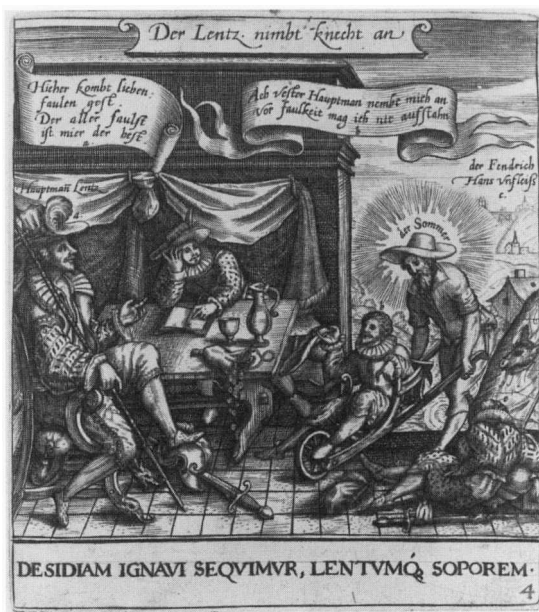 Der Lentz nimbt knecht an
Hieher kombt lieben
faulen gest
Der aller faulst
ist mier der best
a.
Ach Vester Hauptman nembt mich an
Vor faulkeit mag ich nit auffstahn
b
der Fendrich
Hans Unfleiß
c.
Hauptman Lentz
a.
der Sommer
DESIDIAM IGNAVI SEQVIMVR, LENTVMQ; SOPOREM.
4